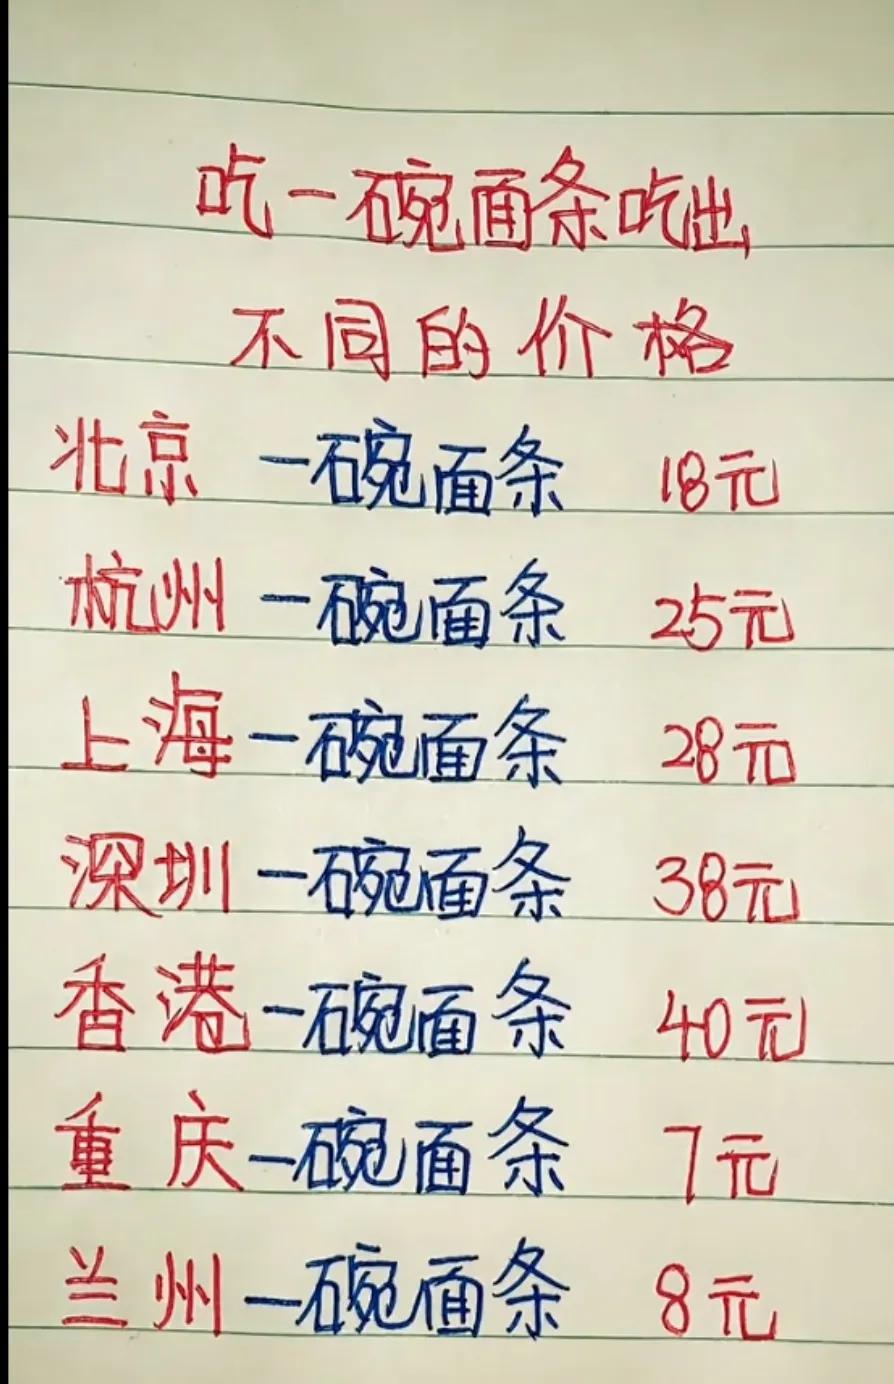 吃一碗面条吃出
不同的价格
北京 一碗面条 18元
杭州 一碗面条 25元
上海 一碗面条 28元
深圳 一碗面条 38元
香港 一碗面条 40元
重庆 一碗面条 7元
兰州 一碗面条 8元